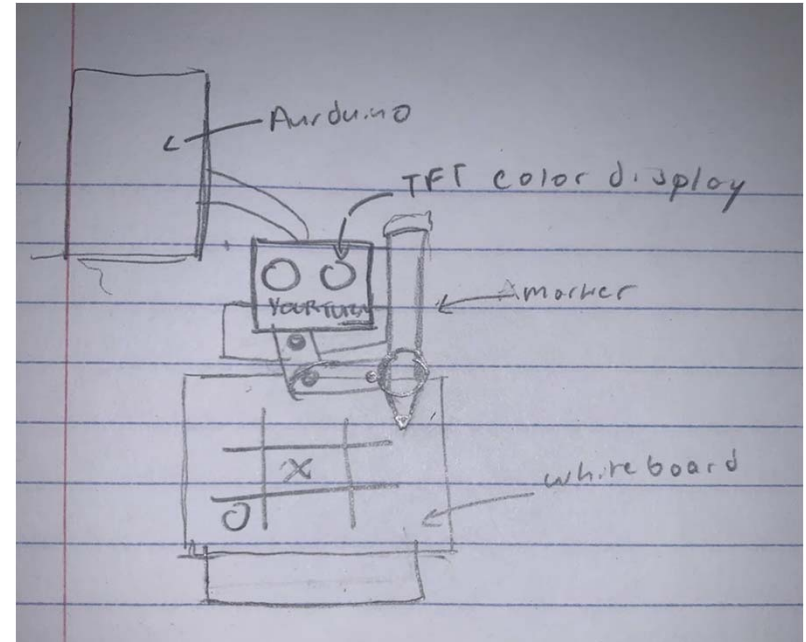 Aurduino
TFT color display
YOUR TURN
A marker
X
O
whiteboard